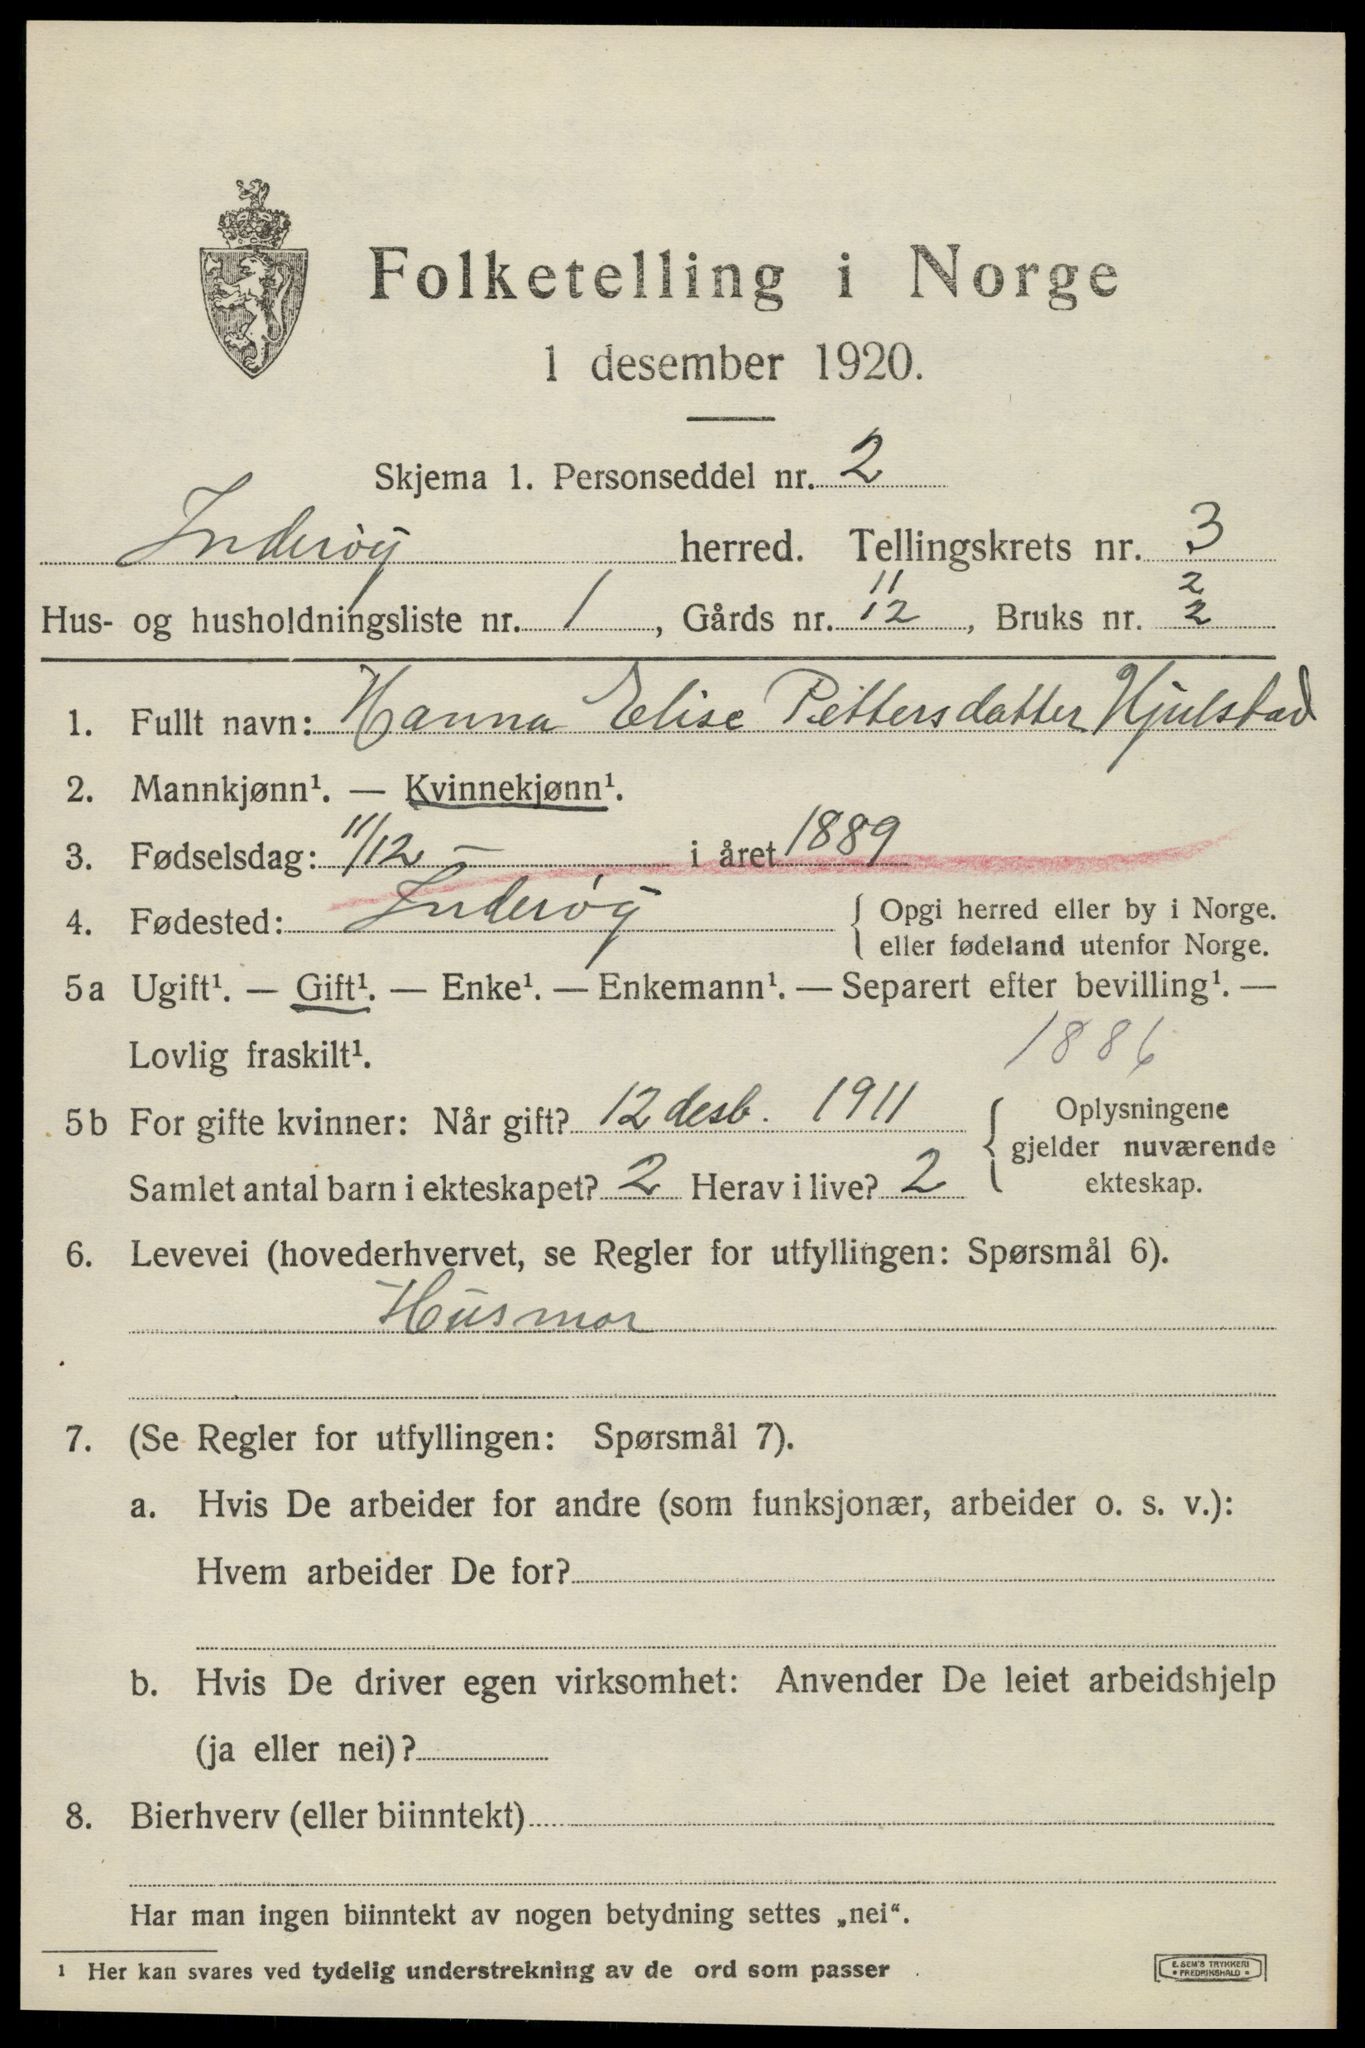 Folketelling i Norge
1 desember 1920.
Skjema 1. Personseddel nr. 2
Inderøy herred. Tellingskrets nr. 3
11 2
Hus- og husholdningsliste nr. 1, Gårds nr. 12, Bruks nr. 2
1. Fullt navn: Hanna Elise Pettersdatter Hjulstad
2. Mannkjønn¹. — Kvinnekjønn¹.
3. Fødselsdag: 11/12 – i året 1889
4. Fødested: Inderøy { Opgi herred eller by i Norge.
eller fødeland utenfor Norge.
5a Ugift¹. — Gift¹. — Enke¹. — Enkemann¹. — Separert efter bevilling¹. —
Lovlig fraskilt¹. 1886
5b For gifte kvinner: Når gift? 12 desb. 1911 { Oplysningene
gjelder nuværende
Samlet antal barn i ekteskapet? 2 Herav i live? 2 ekteskap.
6. Levevei (hovederhvervet, se Regler for utfyllingen: Spørsmål 6).
Husmor
7. (Se Regler for utfyllingen: Spørsmål 7).
a. Hvis De arbeider for andre (som funksjonær, arbeider o. s. v.):
Hvem arbeider De for?
b. Hvis De driver egen virksomhet: Anvender De leiet arbeidshjelp
(ja eller nei)?
8. Bierhverv (eller biinntekt)
Har man ingen biinntekt av nogen betydning settes „nei“.
¹ Her kan svares ved tydelig understrekning av de ord som passer
E. SEM'S TRYKKERI
• FREDRIKSHALD •